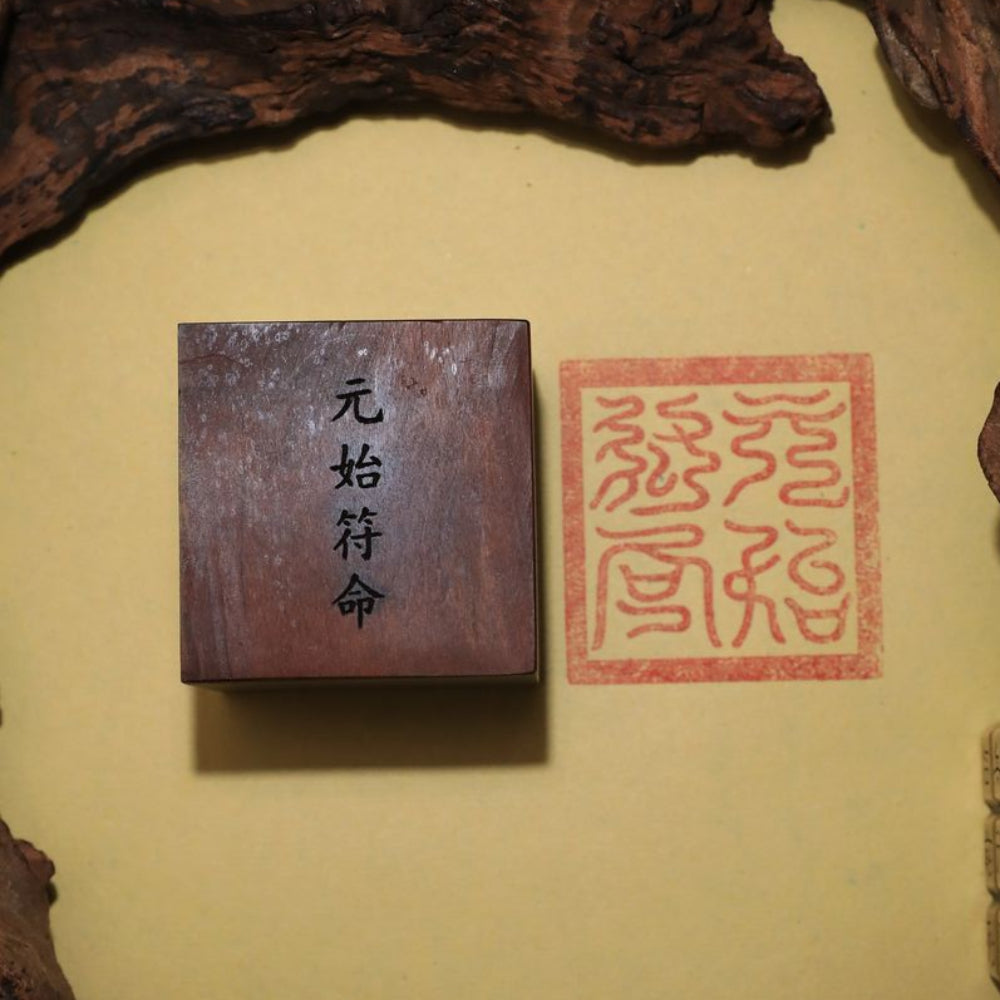 元始符命
元始
符命